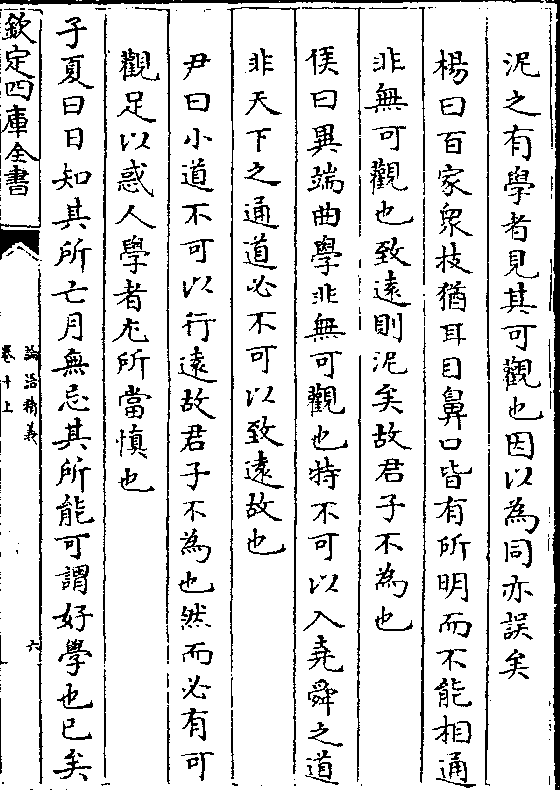 泥之有學者見其可觀也因以為同亦誤矣
楊曰百家衆技猶耳目鼻口皆有所明而不能相通
非無可觀也致遠則泥矣故君子不為也
侯曰異端曲學非無可觀也特不可以入堯舜之道
非天下之通道必不可以致遠故也
尹曰小道不可以行遠故君子不為也然而必有可
觀足以惑人學者尤所當慎也
子夏曰日知其所亡月無忘其所能可謂好學也已矣
欽定四庫全書
論語精義
卷十上
六